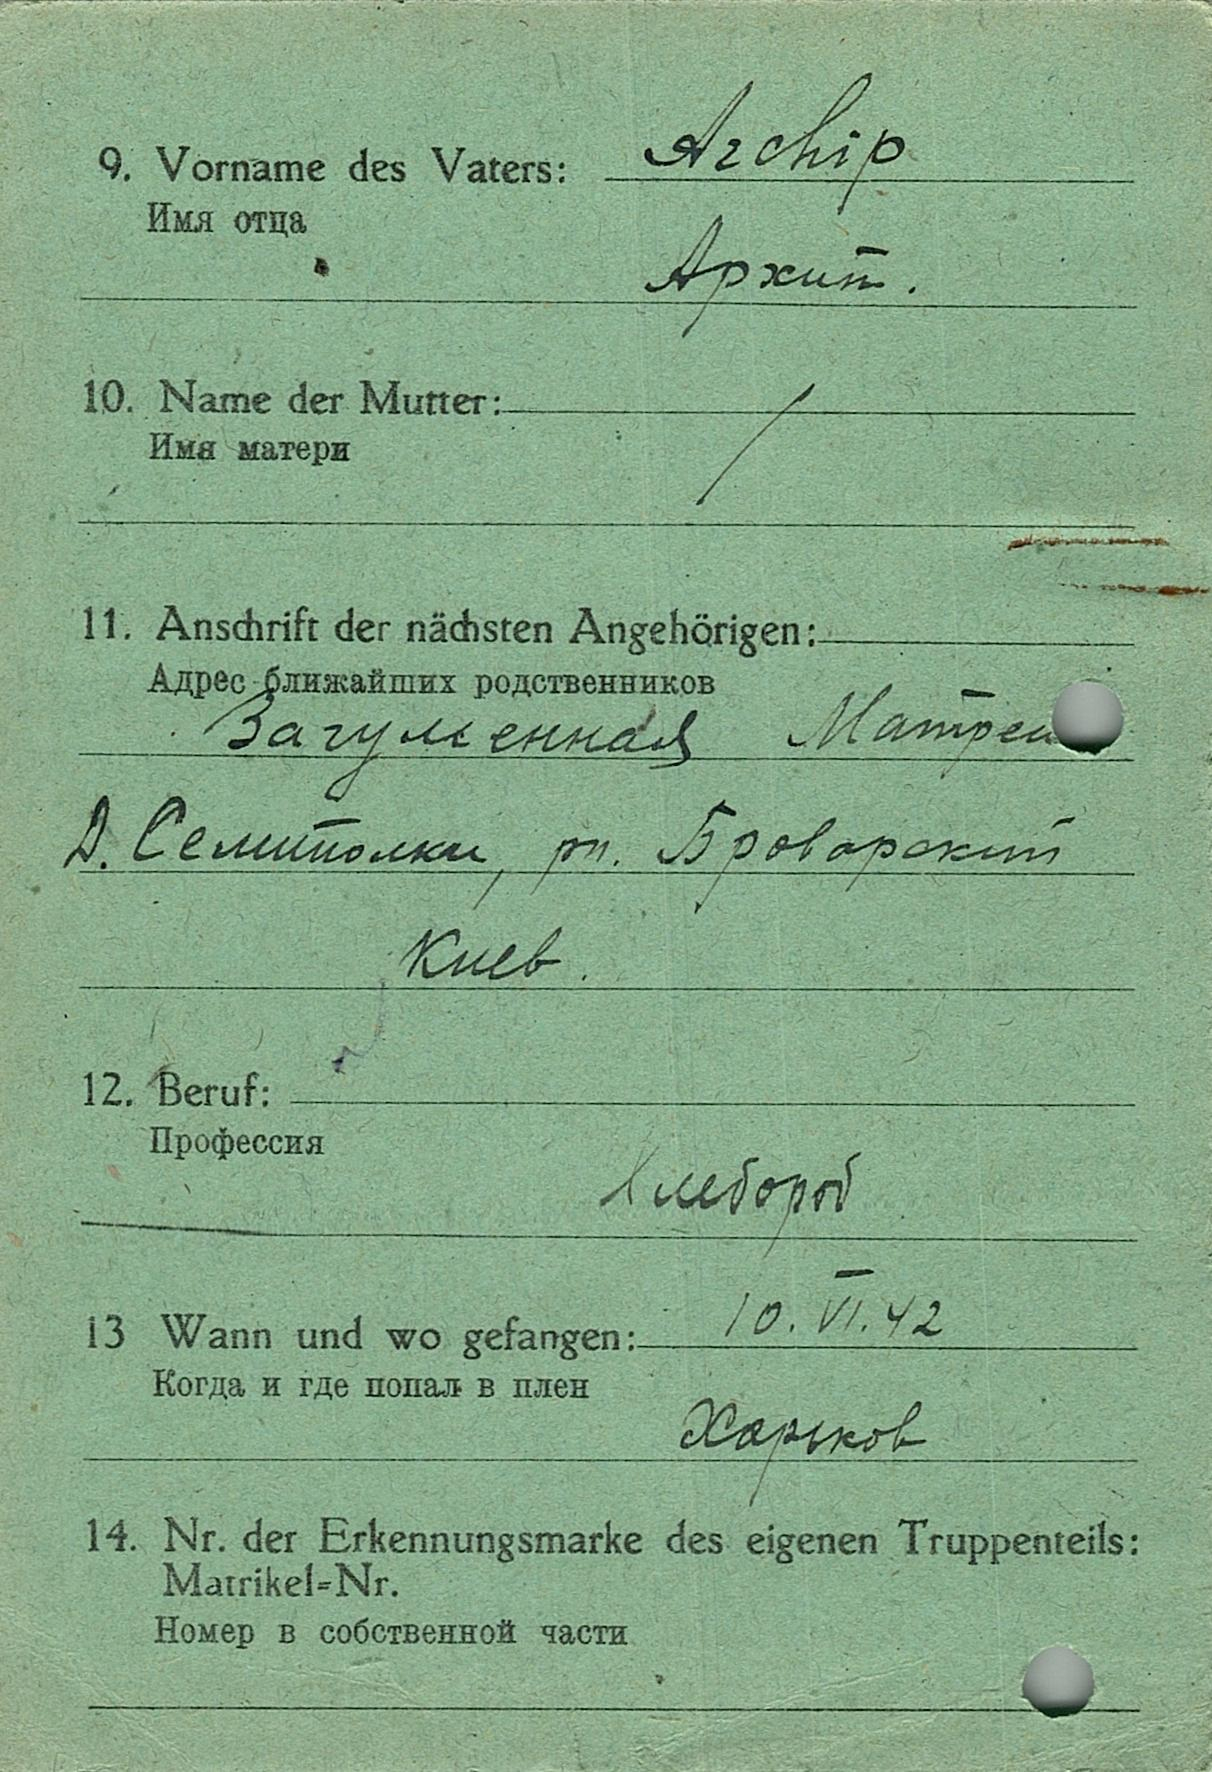 9. Vorname des Vaters: Archip
Имя отца
Архип.
10. Name der Mutter: /
Имя матери
11. Anschrift der nächsten Angehörigen:
Адрес ближайших родственников
Загуменная Матрен
Д. Семиполки, рн. Броварский
Киев.
12. Beruf:
Профессия
Хлебороб
13 Wann und wo gefangen: 10. VI. 42
Когда и где попал в плен
Харьков
14. Nr. der Erkennungsmarke des eigenen Truppenteils:
Matrikel=Nr.
Номер в собственной части